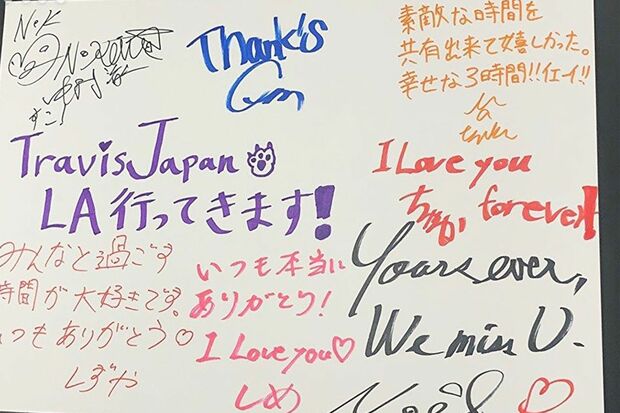 NEK
Thank's
素敵な時間を
共有出来て嬉しかった。
幸せな3時間!!イエーイ!!
Travis Japan
LA 行ってきます!
I Love you
ちゃか, forever!
みんなと過ごす
時間が大好きです。
いつもありがとう♡
しずや
いつも本当に
ありがとう!
I Love you♡
しめ
Yours ever,
We miss U.